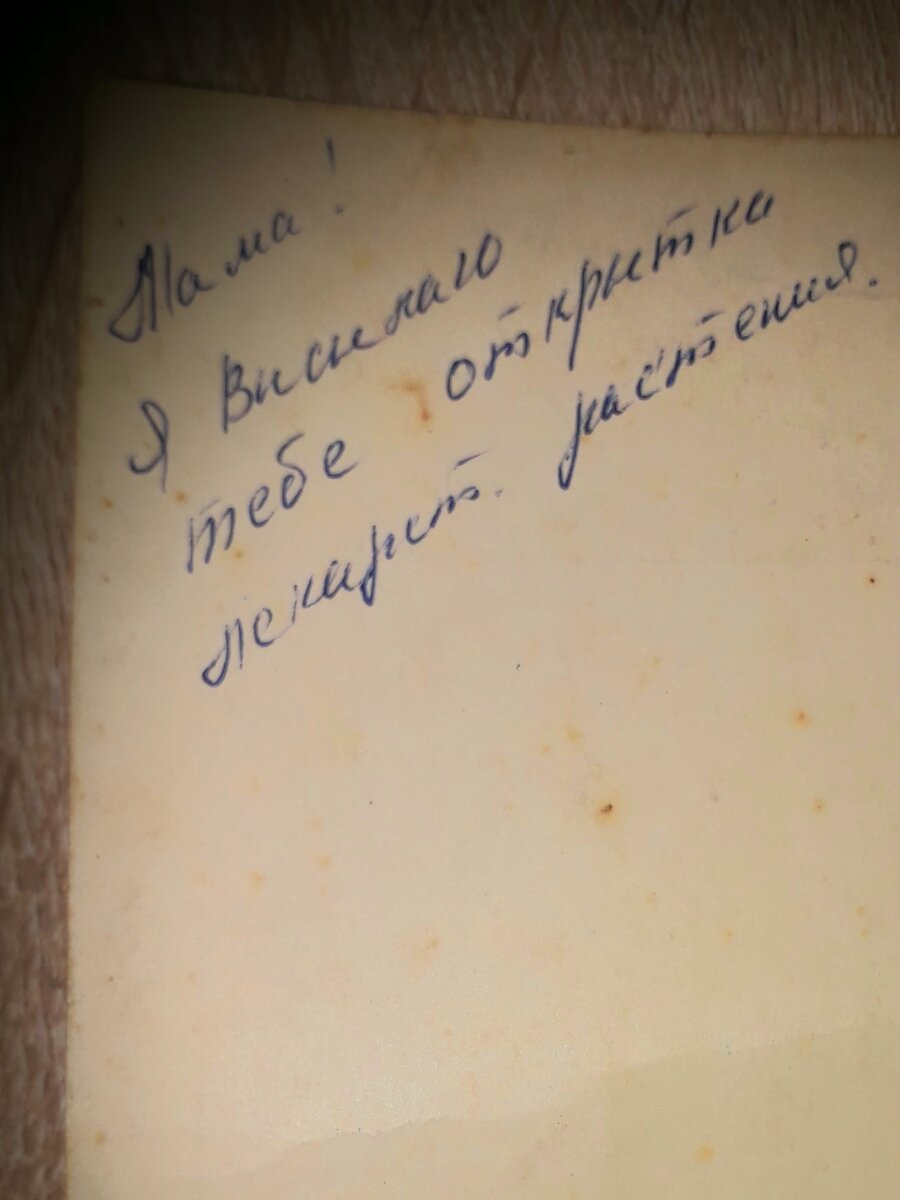 Мама!
Я Висилаю
тебе открытка
лекарст. растения.